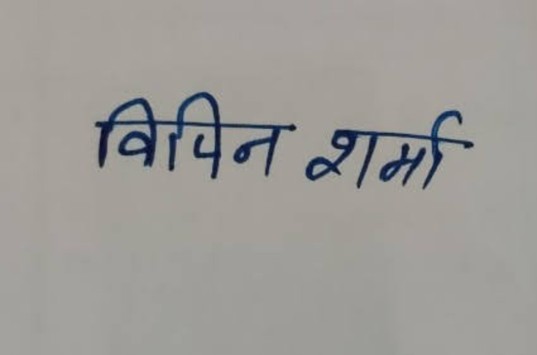 विपिन शर्मा